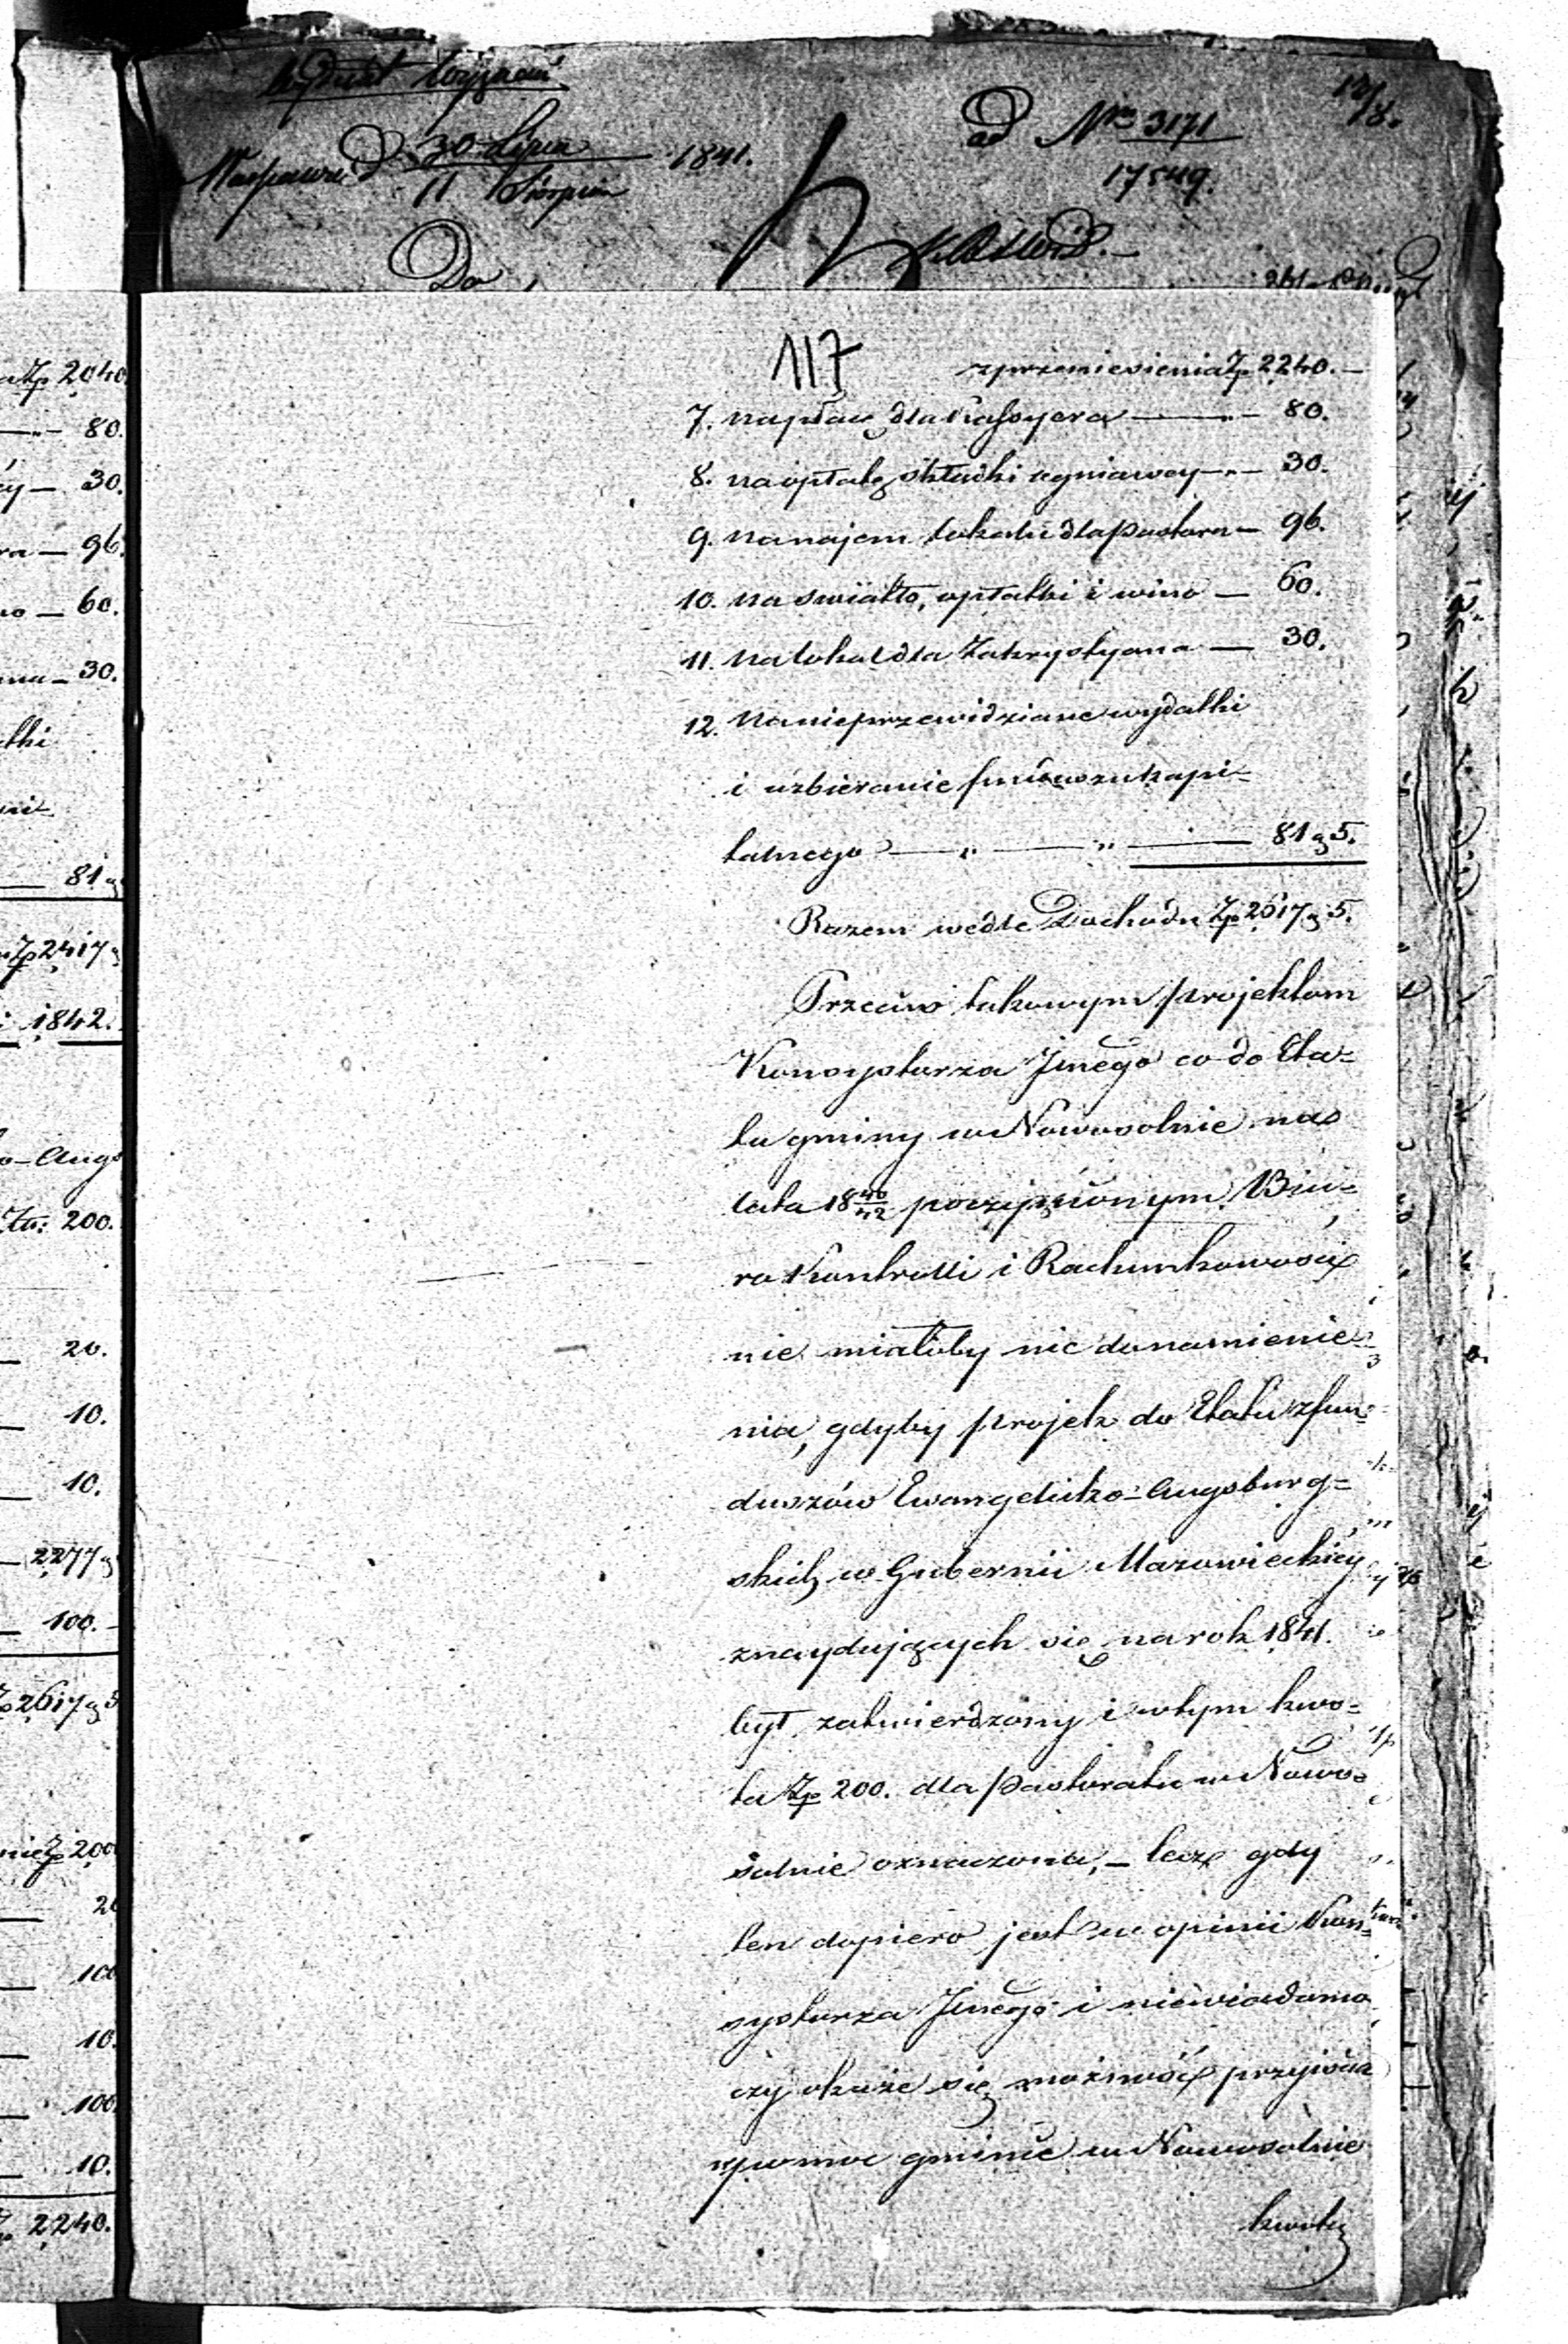 Wydział Wyznań
Warszawa D. 30 Lipca 1841.
11 Sierpnia
ad Nro 3171
17549.
12/8.
Do
117
z przeniesienia Zp 2240. —
7. na płacę dla Kassyera — „ — 80.
8. na opłatę składki ogniowey — „ — 30.
9. na najem lokalu dla Pastora — 96.
10. na światło, opłatki i wino — 60.
11. na lokal dla Zakrystyana — 30.
12. na nieprzewidziane wydatki
i uzbieranie funduszu kapi=
talnego — „ — „ — 81 g 5.
Razem wedle Dochodu Zp 2617 g 5.
Przeciw takowym projektom
Konsystorza Jnego co do Eta=
tu gminy w Nowosolnie na
lata 18 40/42 poczynionym, Biu=
ro Kontrolli i Rachunkowości
nie miałoby nic do namienie=
nia, gdyby projekt do Etatu z fun=
duszów Ewangelicko-Augsburg=
skich w Gubernii Mazowieckiéy
znaydujących się na rok 1841.
był zatwierdzony i w tym kwo=
ta Zp 200. dla Pastoratu w Nowo=
solnie oznaczona, — lecz gdy
ten dopiero jest w opinii Kon=
systorza Jnego i niewiadomo
czy okaże się możność przyiścia
w pomoc gminie w Nowosolnie
kwotą
a Zp 2040.
— „ — 80.
— 30.
ra — 96.
no — 60.
na — 30.
tki
— 81 g
Zp 2417 g
i 1842.
o-Augs
200.
— 20.
— 10.
— 10.
— 2277 g
— 100. —
Zp 2617 g 5
nie Zp 200
— 20
— 100
— 10.
— 100.
— 10.
2240.